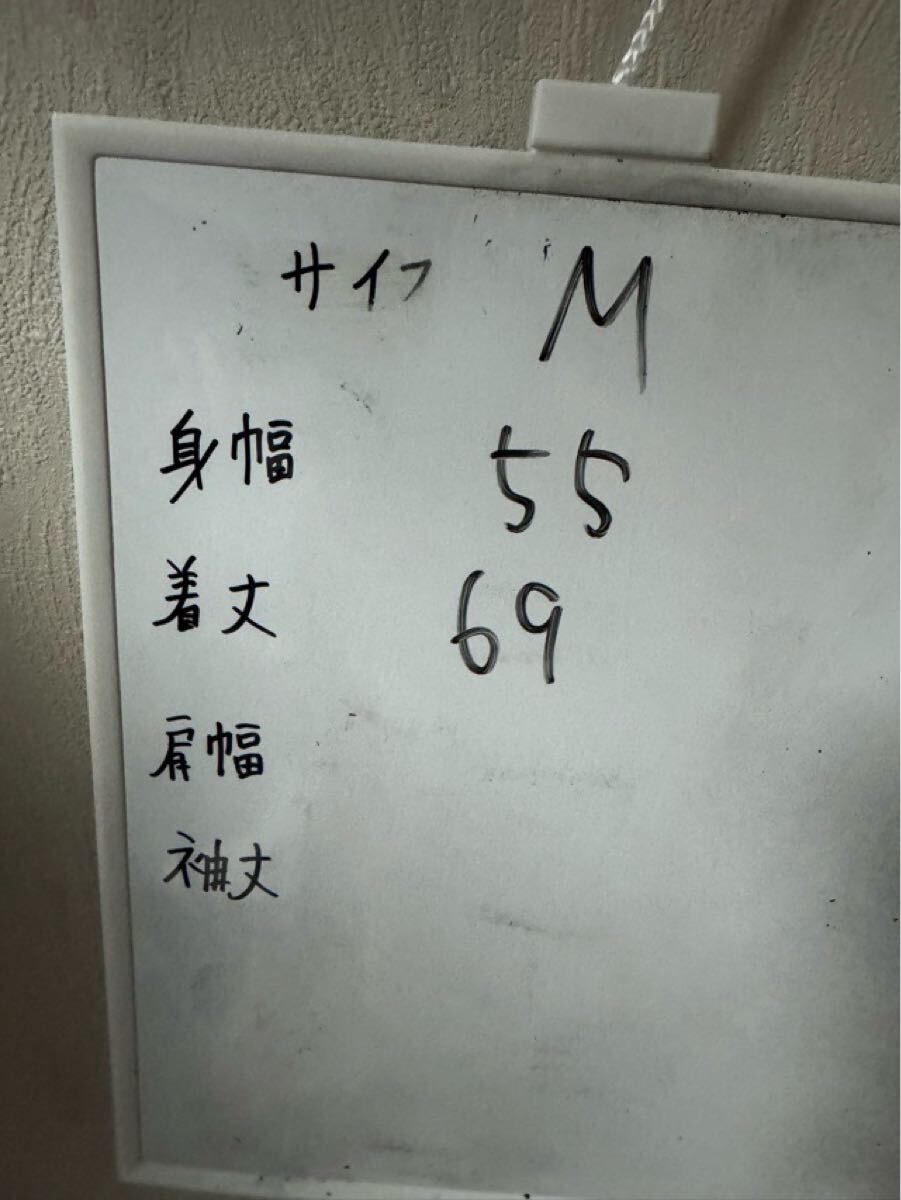 サイフ M
身幅 55
着丈 69
肩幅
袖丈